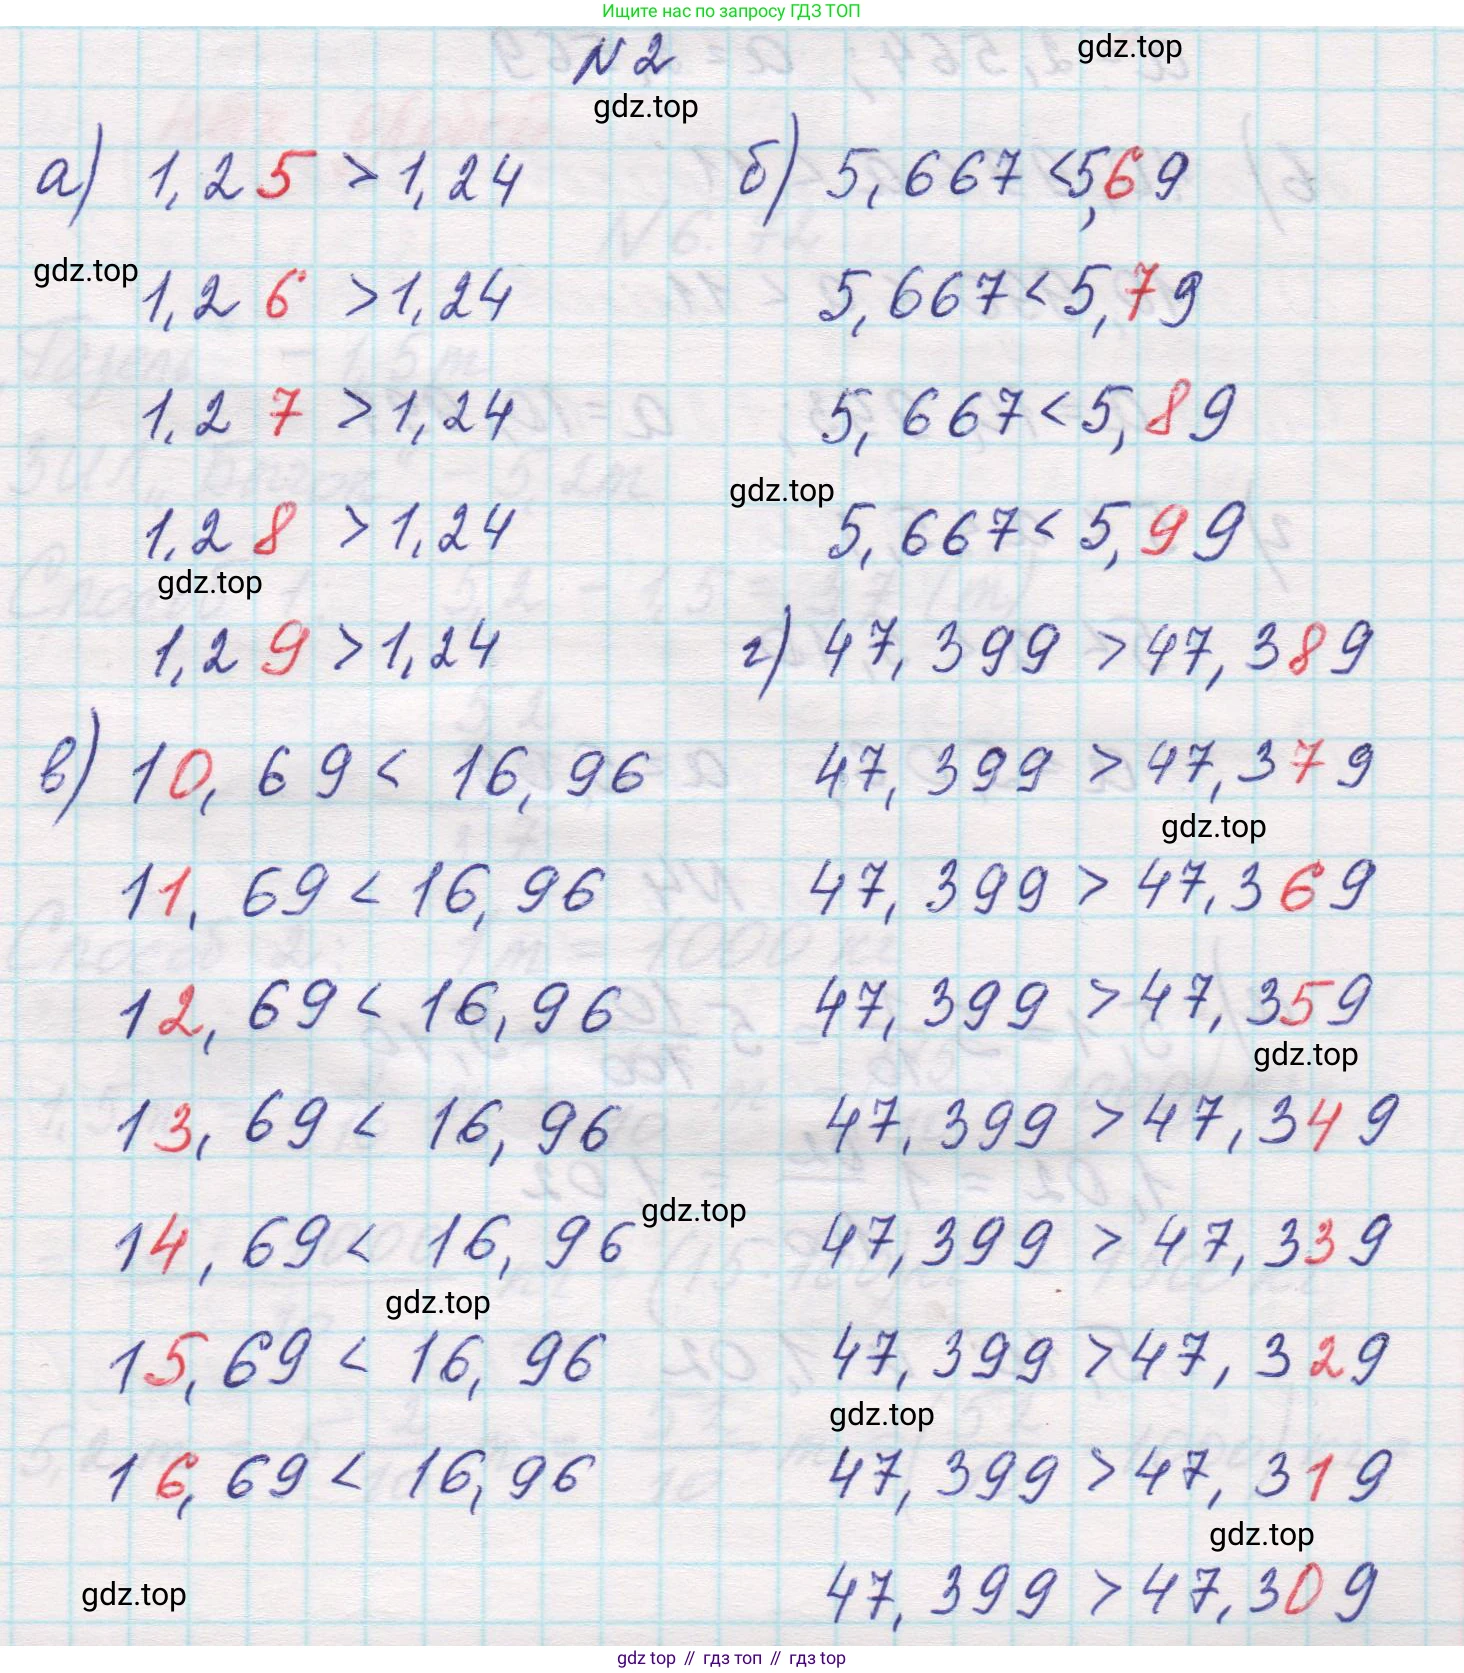 Ищите нас по запросу ГДЗ ТОП
N2
gdz.top
gdz.top
а) 1,25 > 1,24
gdz.top
1,26 > 1,24
1,27 > 1,24
1,28 > 1,24
gdz.top
1,29 > 1,24
б) 5,667 < 5,69
5,667 < 5,79
5,667 < 5,89
gdz.top
5,667 < 5,99
в) 10,69 < 16,96
11,69 < 16,96
12,69 < 16,96
13,69 < 16,96
gdz.top
14,69 < 16,96
gdz.top
15,69 < 16,96
16,69 < 16,96
gdz.top
г) 47,399 > 47,389
47,399 > 47,379
gdz.top
47,399 > 47,369
47,399 > 47,359
gdz.top
47,399 > 47,349
47,399 > 47,339
47,399 > 47,329
gdz.top
47,399 > 47,319
gdz.top
47,399 > 47,309
gdz top // гдз топ // гдз top